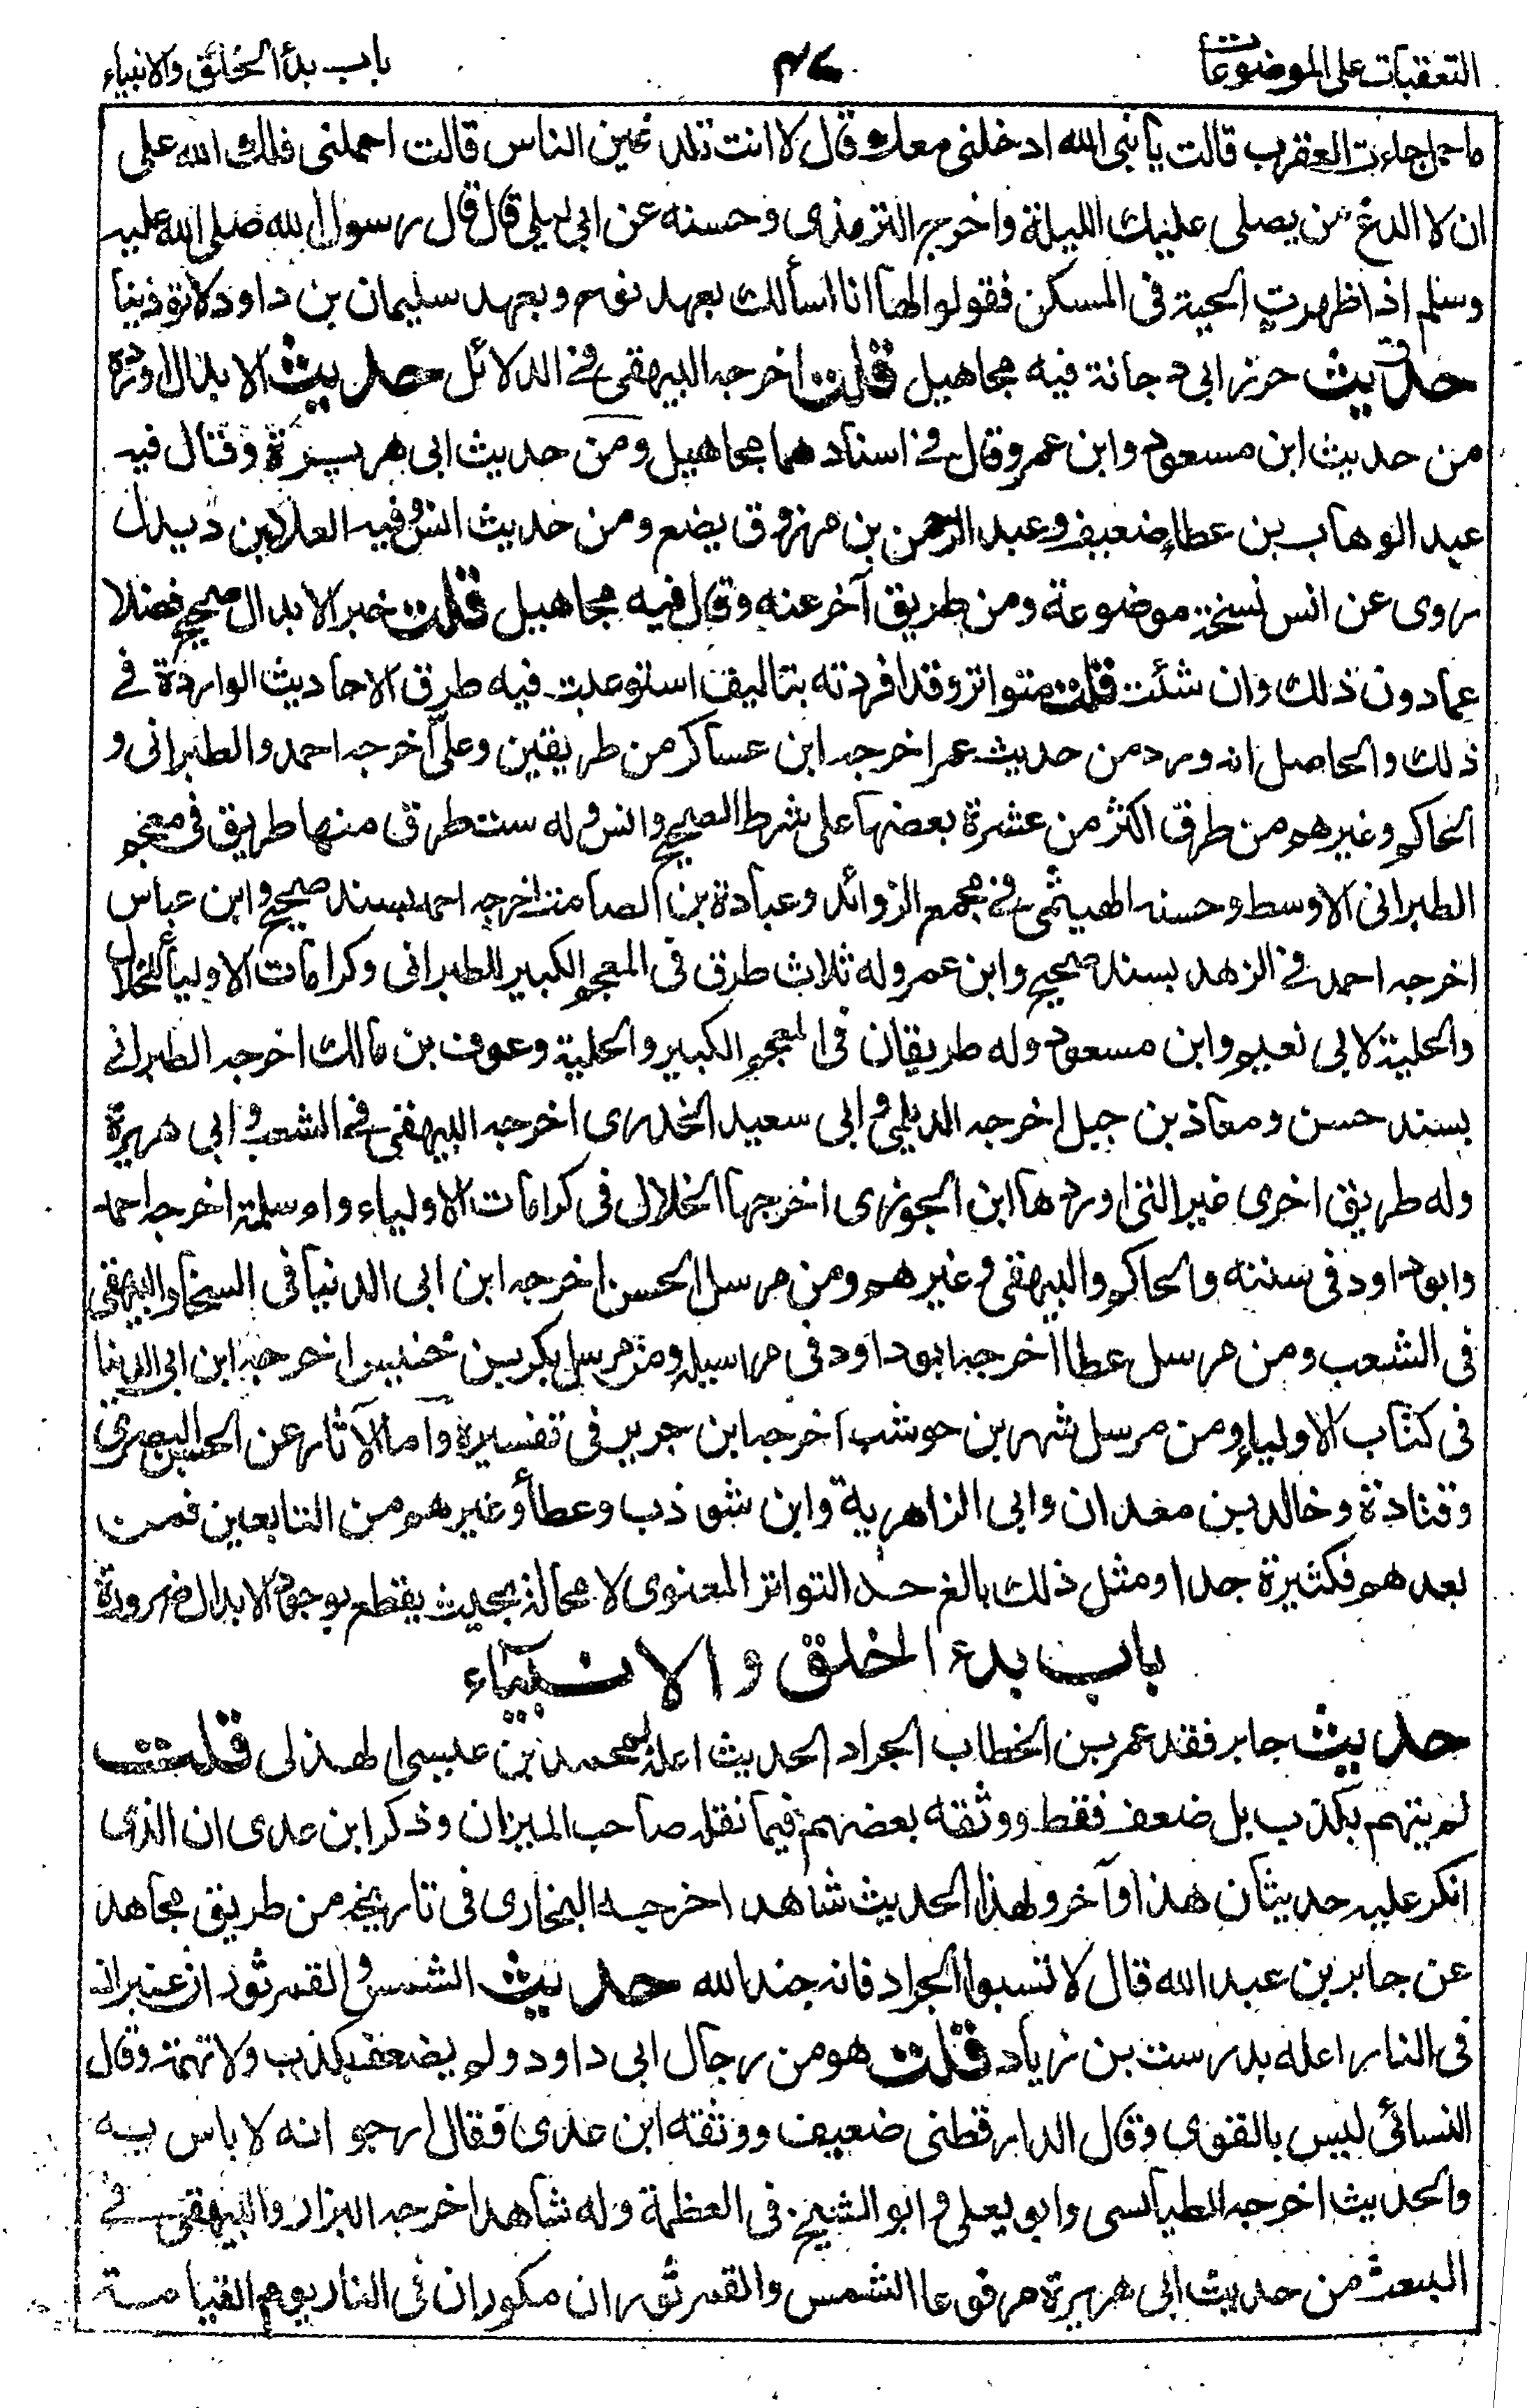 التعقبات على الموضوعات
٤٧
باب بدأ الخلائق والانبياء
ما حمل جاءت العقرب قالت يا نبى الله ادخلنى معك قال لا انت تلدغين الناس قالت احملنى فلك الله على
ان لا الدغ من يصلى عليك الليلة واخرج الترمذى وحسنه عن ابى ليلى قال قال رسول الله صلى الله عليه
وسلم اذا ظهرت الحية فى المسكن فقولوا لها انا اسألك بعهد نوح وبعهد سليمان بن داود لا تؤذينا
حديث حرز ابى دجانة فيه مجاهيل قلت اخرجه البيهقى فى الدلائل حديث الابدال اورده
من حديث ابن مسعود وابن عمر وقال فى اسنادهما مجاهيل ومن حديث ابى هريرة وقال فيه
عبد الوهاب بن عطاء ضعيف وعبد الرحمن بن مرزوق يضع ومن حديث انس وفيه العلاء بن زيدل
روى عن انس نسخة موضوعة ومن طريق آخر عنه وقال فيه مجاهيل قلت خبر الابدال صحيح فضلا
عما دون ذلك وان شئت قلت متواتر وقد افردته بتاليف استوعبت فيه طرق الاحاديث الواردة فى
ذلك والحاصل انه ورد من حديث عمر اخرجه ابن عساكر من طريقين وعلى اخرجه احمد والطبرانى و
الحاكم وغيرهم من طرق اكثر من عشرة بعضها على شرط الصحيح وانس وله ست طرق منها طريق فى معجم
الطبرانى الاوسط وحسنه الهيثمى فى مجمع الزوائد وعبادة بن الصامت اخرجه احمد بسند صحيح وابن عباس
اخرجه احمد فى الزهد بسند صحيح وابن عمر وله ثلاث طرق فى المعجم الكبير للطبرانى وكرامات الاولياء للخلال
والحلية لابى نعيم وابن مسعود وله طريقان فى المعجم الكبير والحلية وعوف بن مالك اخرجه الطبرانى
بسند حسن ومعاذ بن جبل اخرجه الديلمى وابى سعيد الخدرى اخرجه البيهقى فى الشعب وابى هريرة
وله طريق اخرى غير التى اوردها ابن الجوزى اخرجها الخلال فى كرامات الاولياء وام سلمة اخرجه احمد
وابوداود فى سننه والحاكم والبيهقى وغيرهم ومن مرسل الحسن اخرجه ابن ابى الدنيا فى السخاء والبيهقى
فى الشعب ومن مرسل عطاء اخرجه ابوداود فى مراسيله ومن مرسل بكر بن خنيس اخرجه ابن ابى الدنيا
فى كتاب الاولياء ومن مرسل شهر بن حوشب اخرجه ابن جرير فى تفسيره واما الآثار عن الحسن البصرى
وقتادة وخالد بن معدان وابى الزاهرية وابن شوذب وعطاء وغيرهم من التابعين فمن
بعدهم فكثيرة جدا ومثل ذلك بالغ حد التواتر المعنوى لا محالة بحيث يقطع بوجود الابدال ضرورة
باب بدء الخلق والانبياء
حديث جابر فقد عمر بن الخطاب الجراد الحديث اعله بمحمد بن عيسى الهذلى قلت
لم يتهم بكذب بل ضعف فقط ووثقه بعضهم فيما نقله صاحب الميزان وذكر ابن عدى ان الذى
انكر عليه حديثان هذا وآخر ولهذا الحديث شاهد اخرجه البخارى فى تاريخه من طريق مجاهد
عن جابر بن عبد الله قال لا تسبوا الجراد فانه جند الله حديث الشمس والقمر ثوران عقيران
فى النار اعله بدرست بن زياد قلت هو من رجال ابى داود ولم يضعف بكذب ولا تهمة وقال
النسائى ليس بالقوى وقال الدارقطنى ضعيف ووثقه ابن عدى فقال ارجو انه لا باس به
والحديث اخرجه الطيالسى وابو يعلى وابو الشيخ فى العظمة وله شاهد اخرجه البزار والبيهقى فى
البعث من حديث ابى هريرة مرفوعا الشمس والقمر ثوران مكوران فى النار يوم القيامة